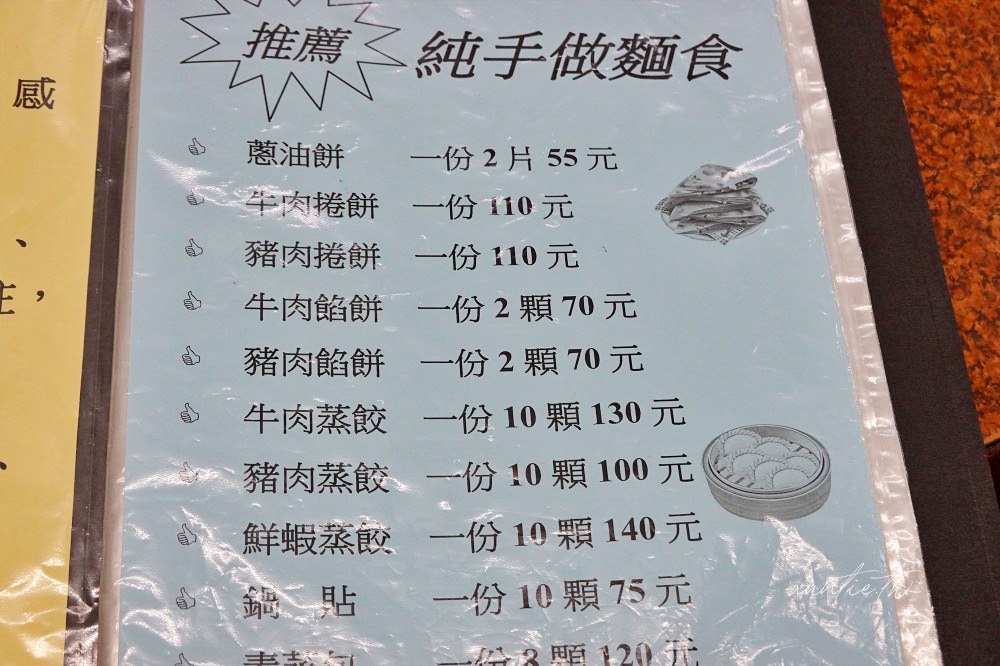 感
、
主，
、
推薦
純手做麵食
蔥油餅 一份 2 片 55 元
牛肉捲餅 一份 110 元
豬肉捲餅 一份 110 元
牛肉餡餅 一份 2 顆 70 元
豬肉餡餅 一份 2 顆 70 元
牛肉蒸餃 一份 10 顆 130 元
豬肉蒸餃 一份 10 顆 100 元
鮮蝦蒸餃 一份 10 顆 140 元
鍋 貼 一份 10 顆 75 元
一份 8 顆 120 元